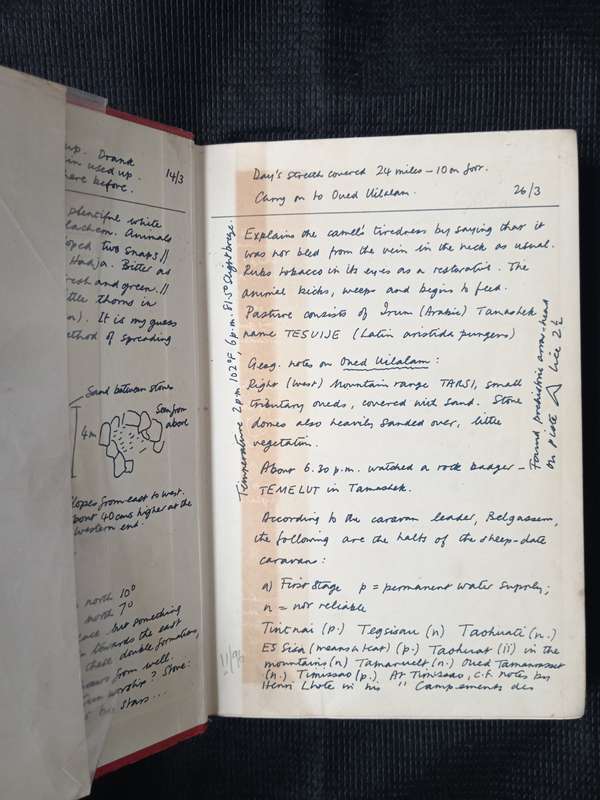 up. Drank
used up.
here before.
14/3
plentiful white
Animals
two snaps //
Hadja. Bitter as
fresh and green. //
little thorns in
It is my guess
method of spreading
Sand between stones
Seen from
above
4m
slopes from east to west.
about 40 cms higher at the
western end.
north 10°
north 7°
but something
towards the east
double formation,
hours from well.
worship? Stone:
stars...
Day's stretch covered 24 miles – 10 on foot.
Carry on to Oued Uilalam.
26/3
Temperature 2 p.m. 102°F, 6 p.m. 81.5° Slight breeze.
Explains the camel's tiredness by saying that it
was not bled from the vein in the neck as usual.
Rubs tobacco in its eyes as a restorative. The
animal kicks, weeps and begins to feed.
Pasture consists of Drum (Arabic) Tamashek
name TESUIJE (Latin aristida pungens)
Geog. notes on Oued Uilalam:
Right (West) Mountain range TARSI, small
tributary oueds, covered with sand. Stone
domes also heavily sanded over, little
vegetation.
About 6.30 p.m. watched a rock badger –
TEMELUT in Tamashek.
According to the caravan leader, Belgassem,
the following are the halts of the sheep-date
caravan:
a) First Stage p = permanent water supply;
n = not reliable
Tintnai (p.) Tegsisau (n) Taohuati (n.)
ES Sisa (means wheat) (p.) Taohuat (ii) in the
mountains (n) Tamaruelt (n.) Oued Tamanrasset
(n.) Timissao (p.) At Timissao, c.f. notes by
Henri Lhote in his "Campements des
Found prehistoric arrow-head
on plate lice 2½
11/96